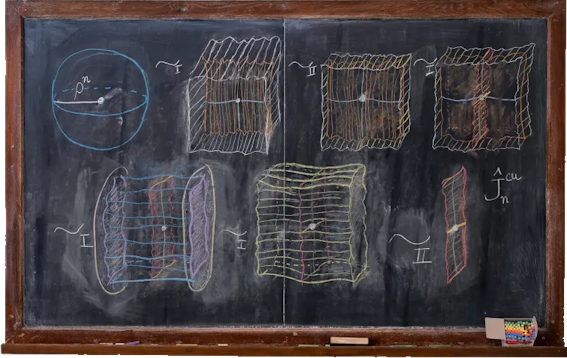 ρⁿ
~I
~II
~I
~I
~I
~II
Ĵₙᶜᵘ